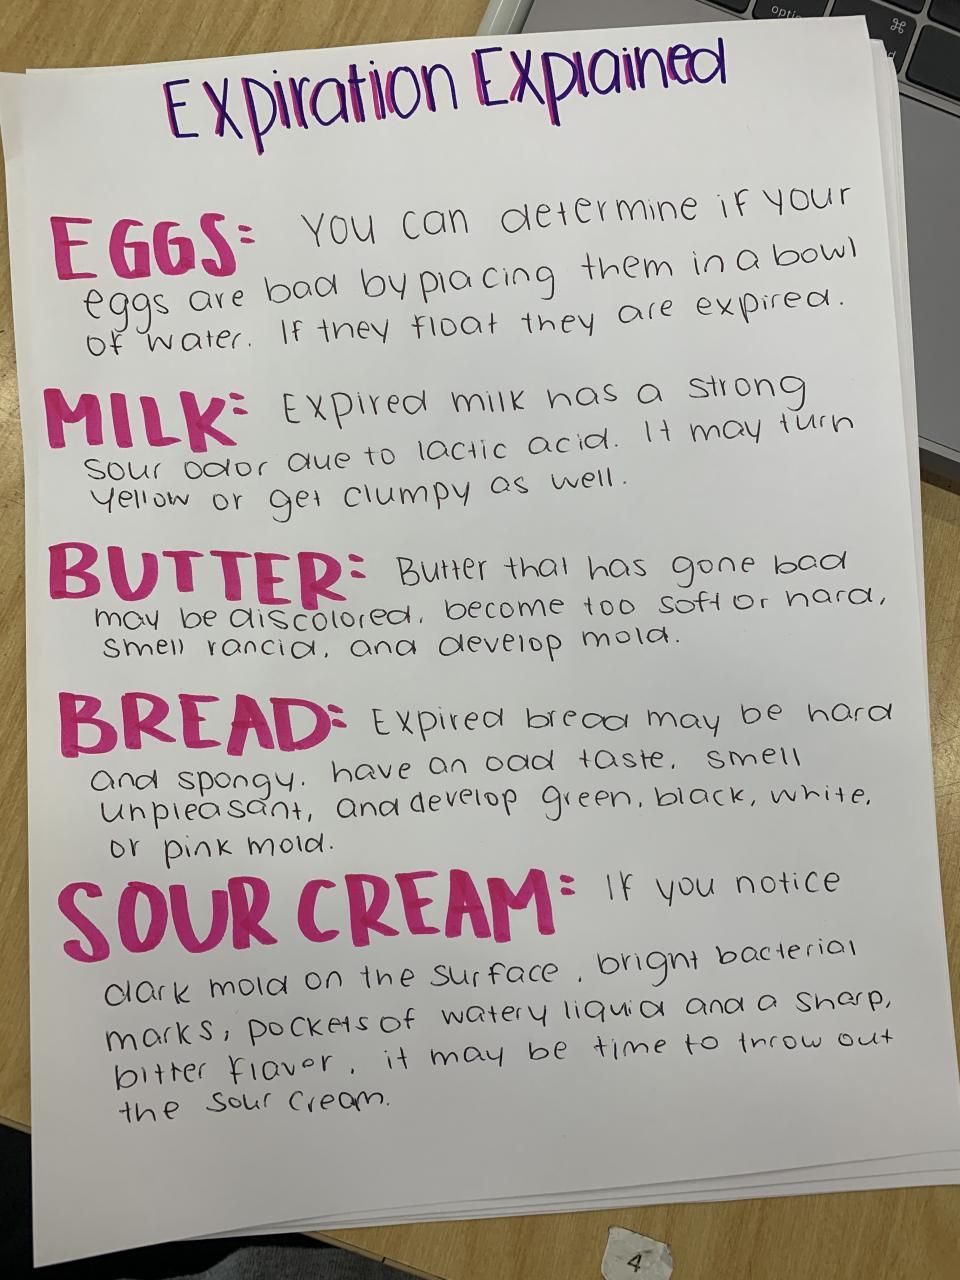 option
⌘
Expiration Explained
EGGS: You can determine if your
eggs are bad by placing them in a bowl
of water. If they float they are expired.
MILK: Expired milk has a strong
sour odor due to lactic acid. It may turn
yellow or get clumpy as well.
BUTTER: Butter that has gone bad
may be discolored, become too soft or hard,
smell rancid, and develop mold.
BREAD: Expired bread may be hard
and spongy, have an odd taste, smell
unpleasant, and develop green, black, white,
or pink mold.
SOUR CREAM: If you notice
dark mold on the surface, bright bacterial
marks, pockets of watery liquid and a sharp,
bitter flavor, it may be time to throw out
the sour cream.
4